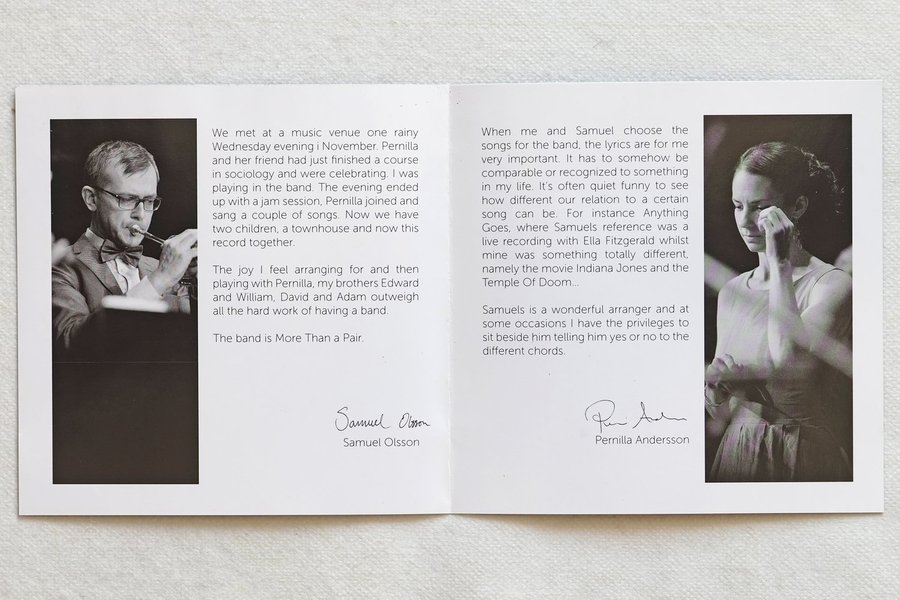 We met at a music venue one rainy
Wednesday evening i November. Pernilla
and her friend had just finished a course
in sociology and were celebrating. I was
playing in the band. The evening ended
up with a jam session, Pernilla joined and
sang a couple of songs. Now we have
two children, a townhouse and now this
record together.
The joy I feel arranging for and then
playing with Pernilla, my brothers Edward
and William, David and Adam outweigh
all the hard work of having a band.
The band is More Than a Pair.
Samuel Olsson
Samuel Olsson
When me and Samuel choose the
songs for the band, the lyrics are for me
very important. It has to somehow be
comparable or recognized to something
in my life. It's often quiet funny to see
how different our relation to a certain
song can be. For instance Anything
Goes, where Samuels reference was a
live recording with Ella Fitzgerald whilst
mine was something totally different,
namely the movie Indiana Jones and the
Temple Of Doom...
Samuels is a wonderful arranger and at
some occasions I have the privileges to
sit beside him telling him yes or no to the
different chords.
Pernilla Andersson